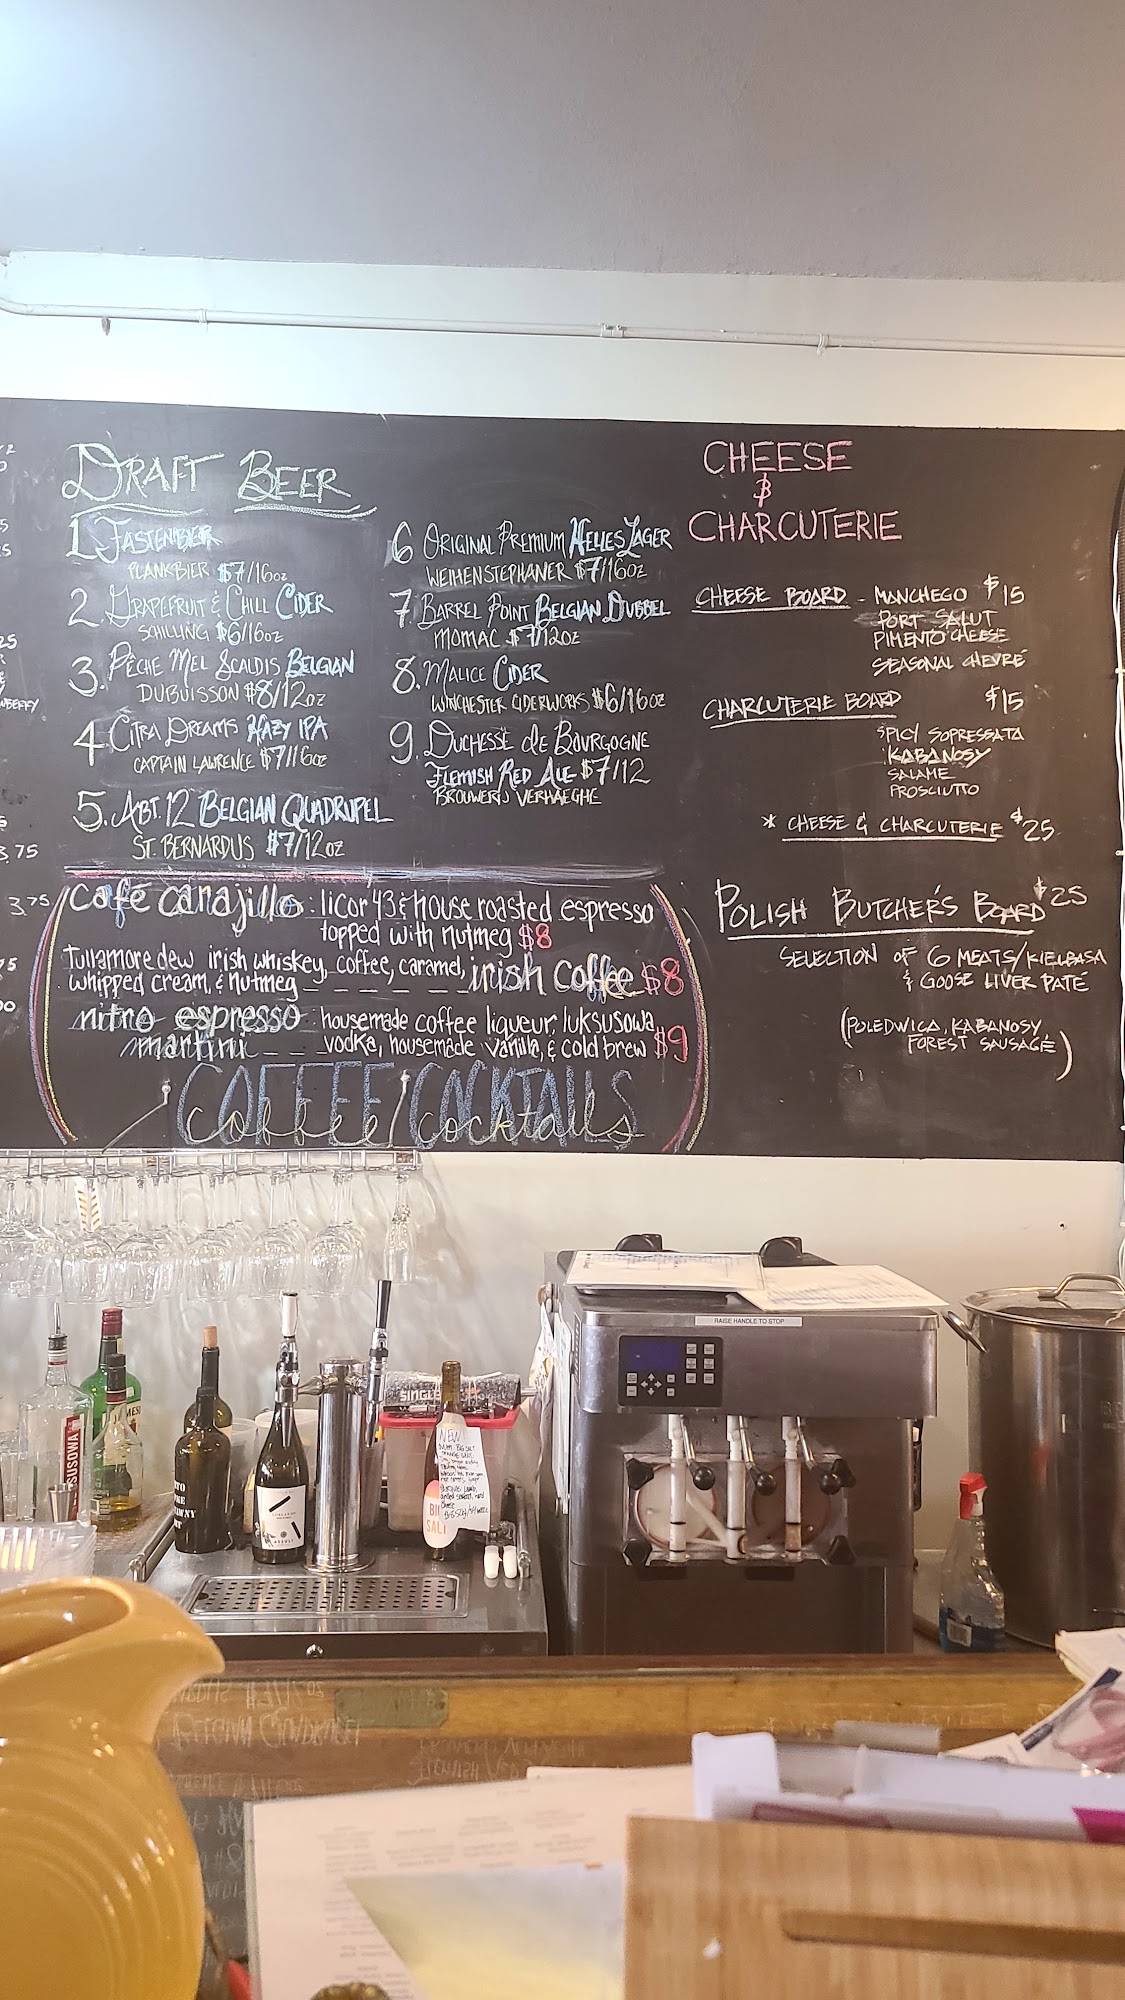 DRAFT BEER
1. FASTENBIER
PLANKBIER $7/16oz
2. GRAPEFRUIT & CHILL CIDER
SCHILLING $6/16oz
3. PÊCHE MEL SCALDIS BELGIAN
DUBUISSON $8/12oz
4 CITRA DREAMS HAZY IPA
CAPTAIN LAWRENCE $7/16oz
5. ABT. 12 BELGIAN QUADRUPEL
ST. BERNARDUS $7/12oz
6 ORIGINAL PREMIUM HELLES LAGER
WEIHENSTEPHANER $7/16oz
7. BARREL POINT BELGIAN DUBBEL
MOMAC $7/12oz
8. MALICE CIDER
WINCHESTER CIDERWORKS $6/16oz
9. DUCHESSE de BOURGOGNE
FLEMISH RED ALE $7/12
BROUWERIJ VERHAEGHE
CHEESE
&
CHARCUTERIE
CHEESE BOARD - MANCHEGO $15
PORT SALUT
PIMENTO CHEESE
SEASONAL CHEVRÉ
CHARCUTERIE BOARD $15
SPICY SOPRESSATA
KABANOSY
SALAME
PROSCIUTTO
* CHEESE & CHARCUTERIE $25
POLISH BUTCHER'S BOARD $25
SELECTION of 6 MEATS/KIELBASA
& GOOSE LIVER PATÉ
(POLEDWICA, KABANOSY,
FOREST SAUSAGE)
café carajillo: licor 43 & house roasted espresso
topped with nutmeg $8
Tullamore dew irish whiskey, coffee, caramel, irish coffee $8
whipped cream, & nutmeg
nitro espresso: housemade coffee liqueur, luksusowa
martini vodka, housemade vanilla, & cold brew $9
COFFEE COCKTAILS
coffee cocktails
3.75
3.75
RAISE HANDLE TO STOP
SUSOWA
NEW!
SALI